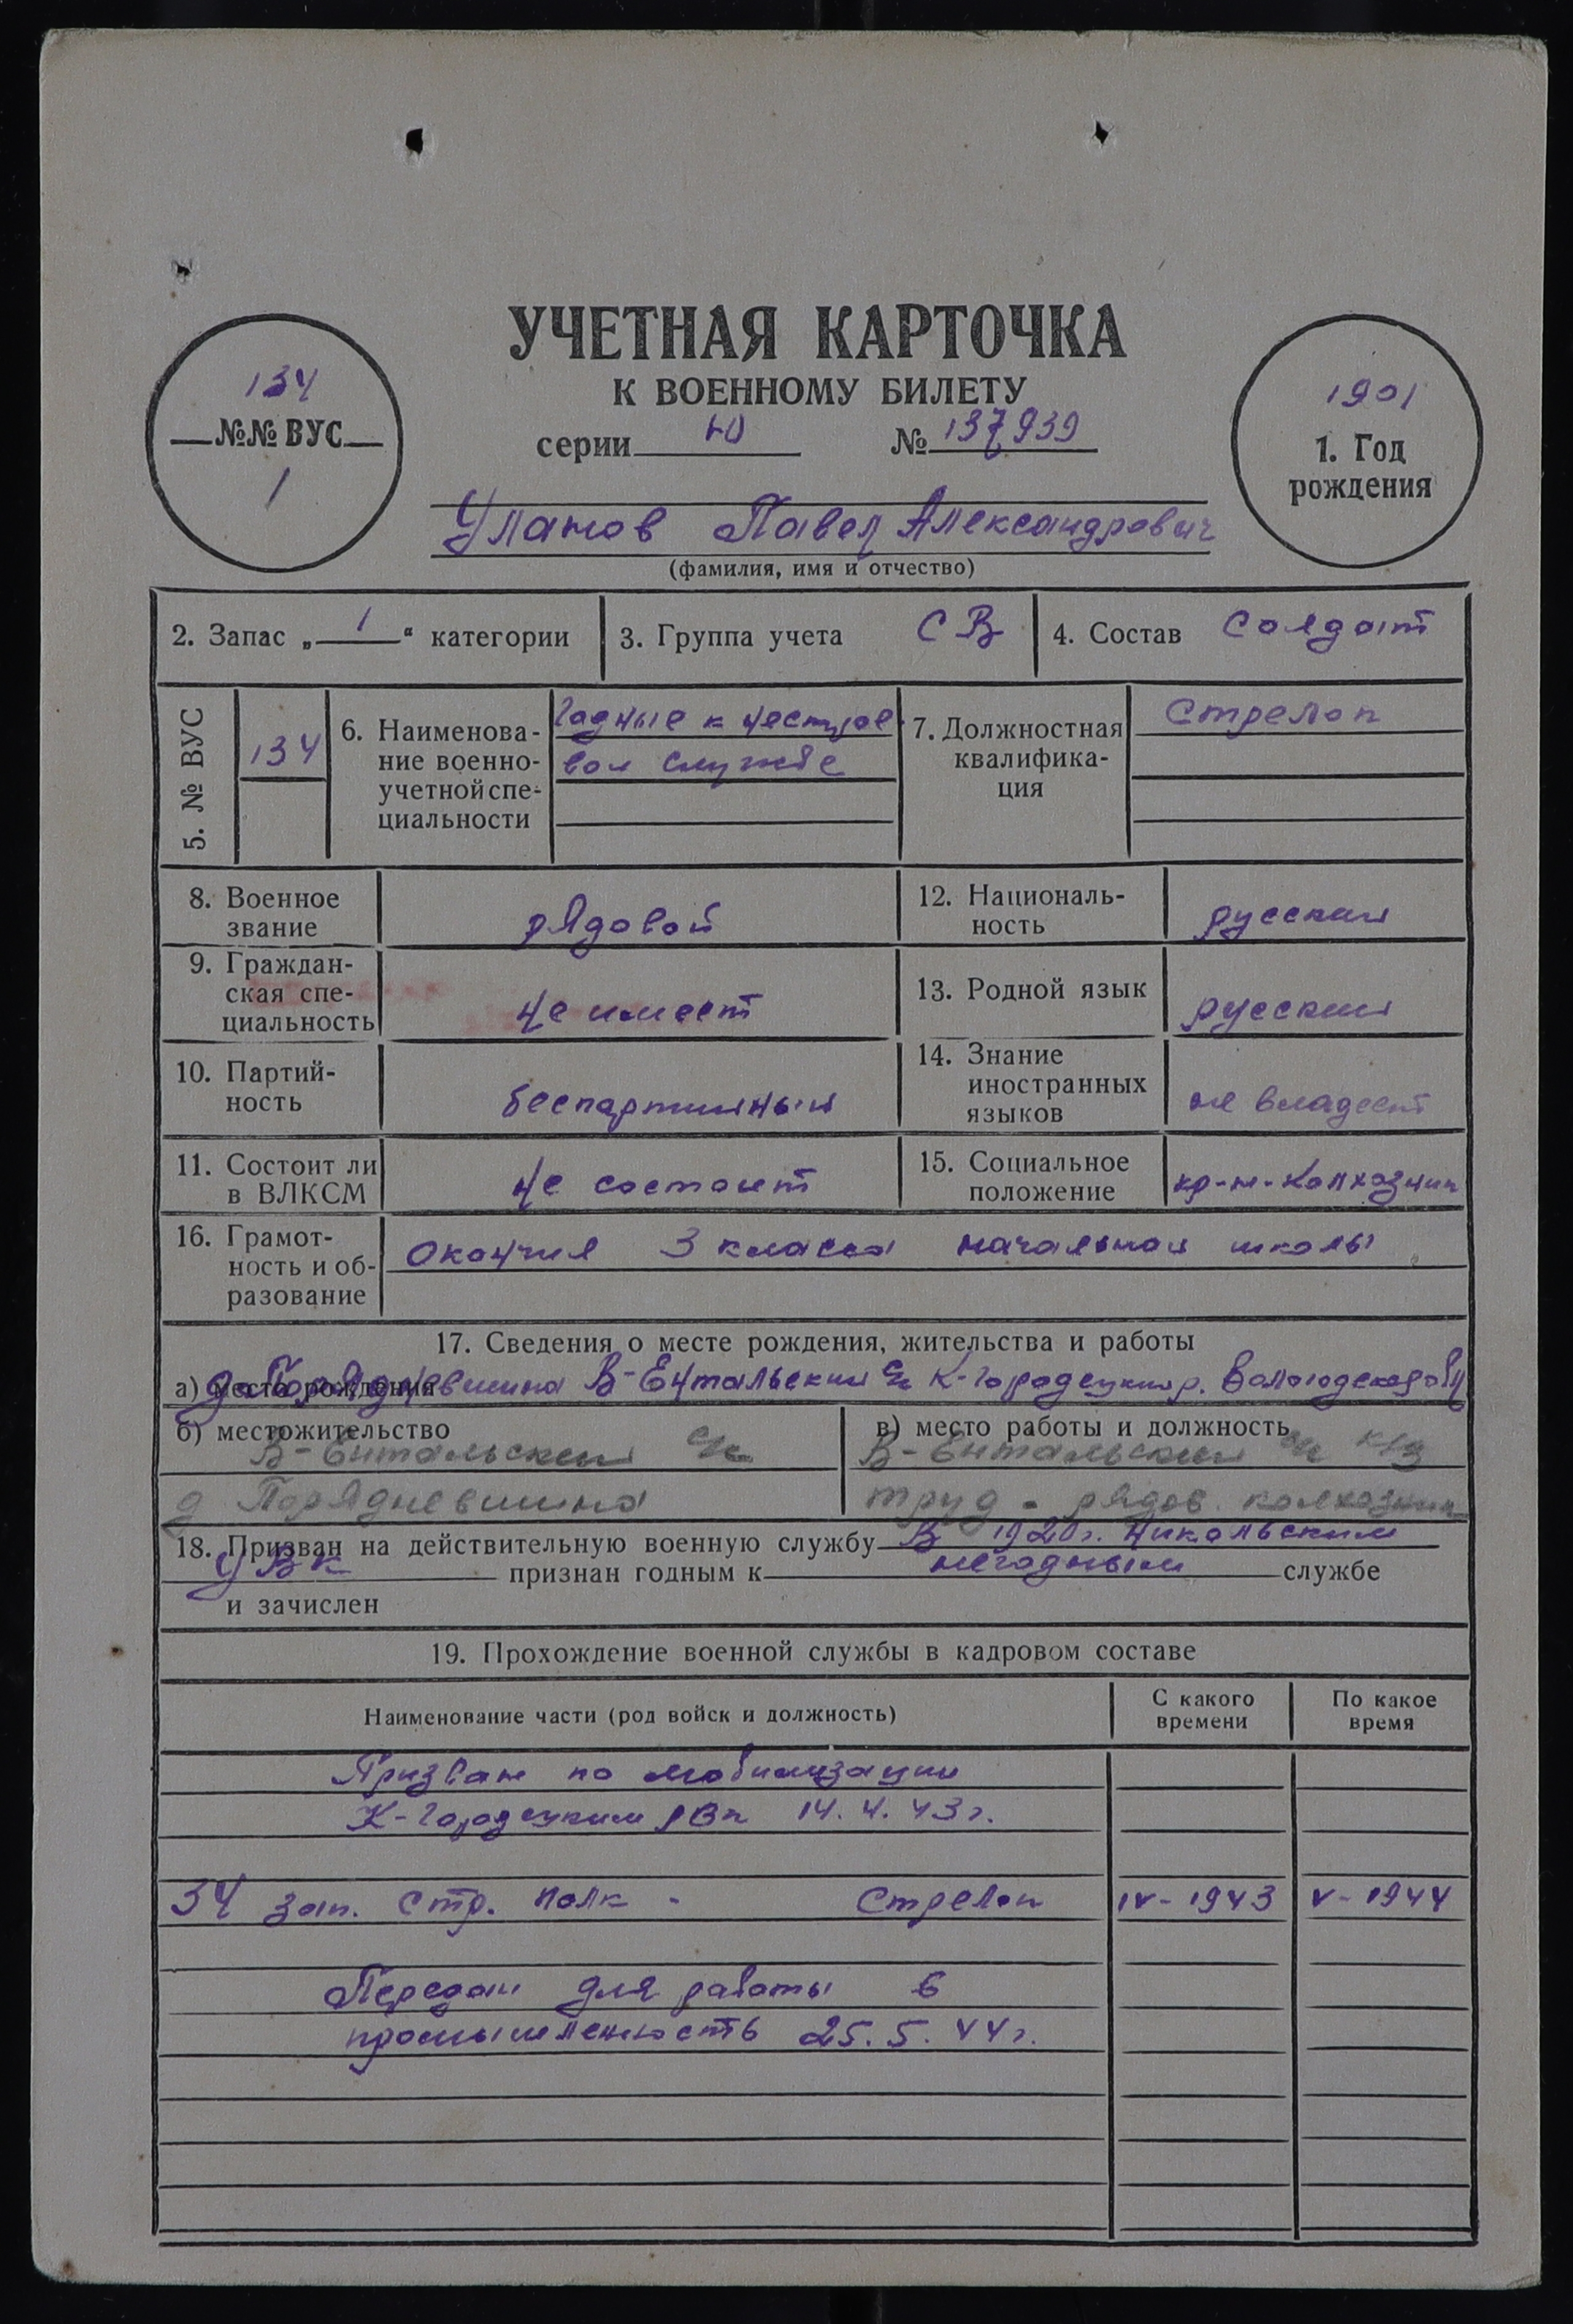 УЧЕТНАЯ КАРТОЧКА
К ВОЕННОМУ БИЛЕТУ
серии Ю № 137939
134
№№ ВУС
1
1901
1. Год
рождения
Уланов Павел Александрович
(фамилия, имя и отчество)
2. Запас „ 1 “ категории
3. Группа учета СВ
4. Состав Солдат
5. № ВУС
134
6. Наименова-
ние военно-
учетной спе-
циальности
Годные к нестрое
вой службе
7. Должностная
квалифика-
ция
Стрелок
8. Военное
звание
рядовой
12. Националь-
ность
русский
9. Граждан-
ская спе-
циальность
не имеет
13. Родной язык
русский
10. Партий-
ность
беспартийный
14. Знание
иностранных
языков
не владеет
11. Состоит ли
в ВЛКСМ
не состоит
15. Социальное
положение
кр-н-колхозник
16. Грамот-
ность и об-
разование
окончил 3 класса начальной школы
17. Сведения о месте рождения, жительства и работы
а) место рождения В-Ентальский с/с К-Городецкий р. Вологодской обл
б) местожительство
В-Ентальский с/с
д Порядневщина
в) место работы и должность
В-Ентальский с/с к/з
труд - рядов. колхозник
18. Призван на действительную военную службу В 1920г. Никольским
УВК признан годным к негодным службе
и зачислен
19. Прохождение военной службы в кадровом составе
Наименование части (род войск и должность)
С какого
времени
По какое
время
Призван по мобилизации
К-Городецким РВК 14.4.43г.
34 зап. стр. полк - Стрелок IV-1943 V-1944
Передан для работы в
промышленность 25.5.44г.